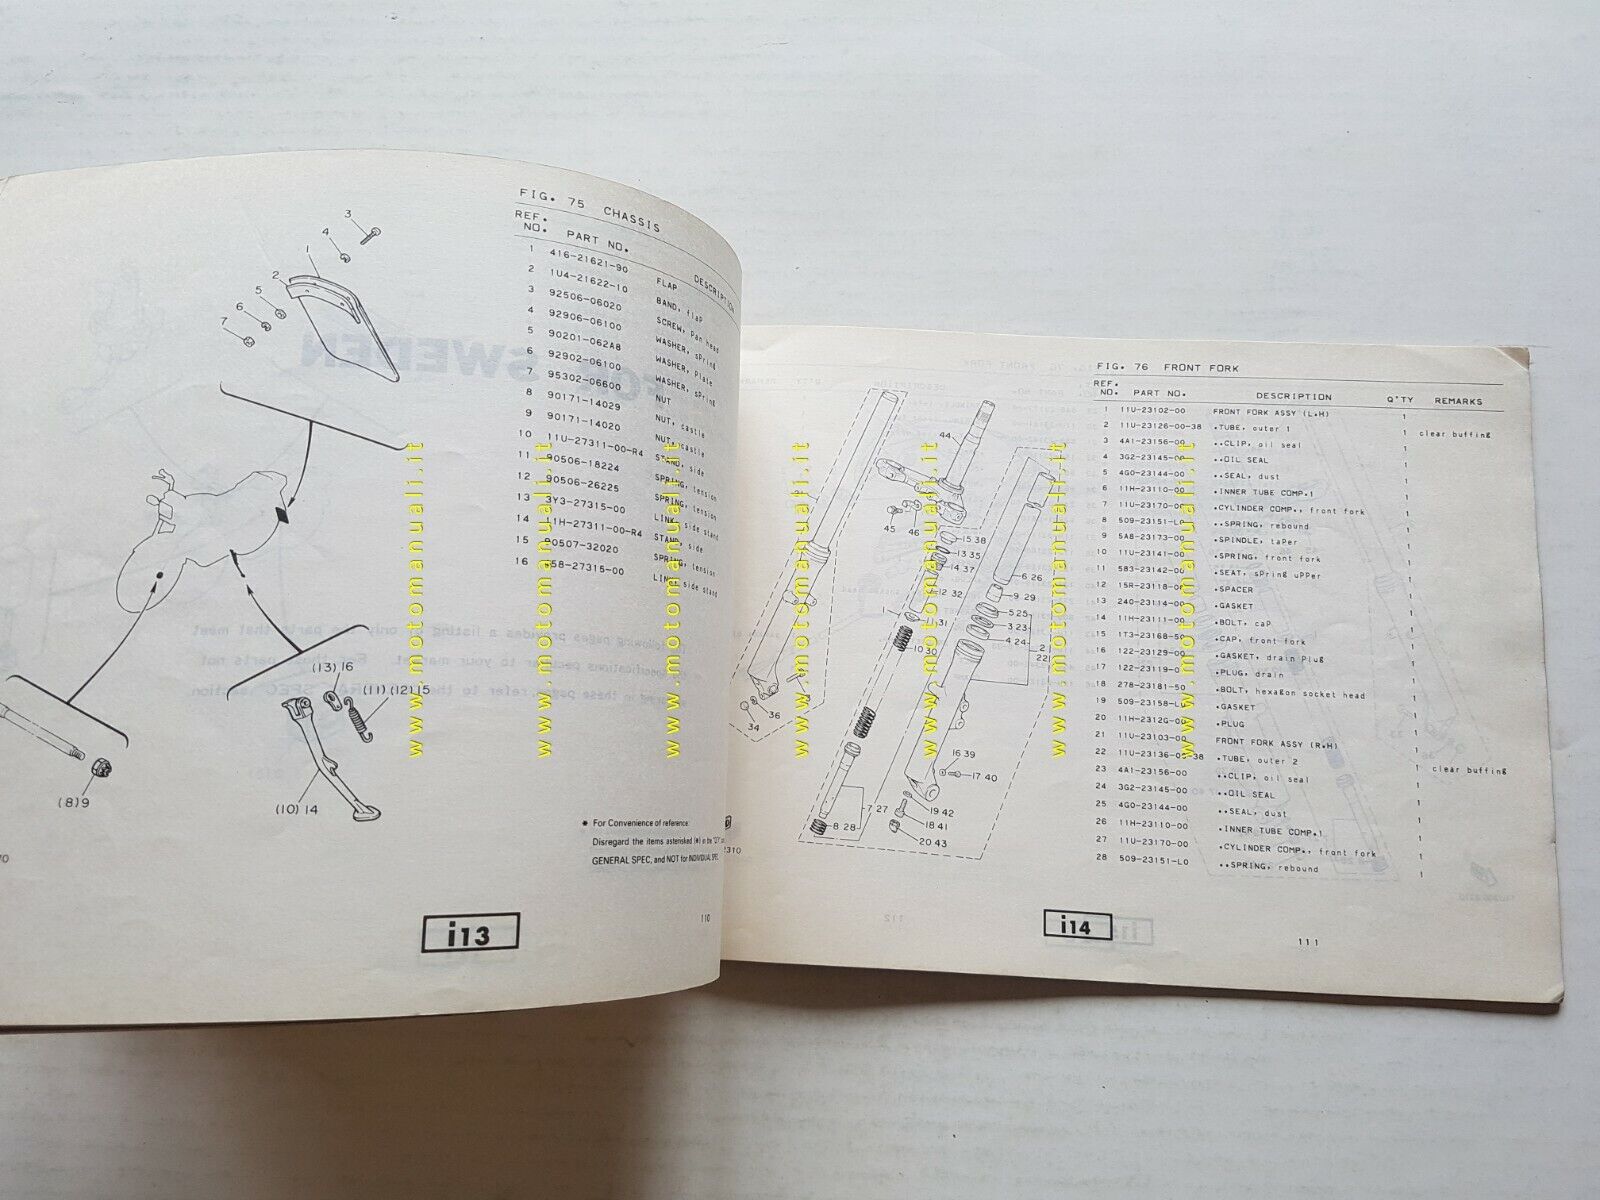 FIG. 75 CHASSIS
REF. NO. PART NO. DESCRIPTION
1 416-21621-90 FLAP
2 1U4-21622-10 BAND, flap
3 92506-06020 SCREW, pan head
4 92906-06100 WASHER, spring
5 90201-062A8 WASHER, plate
6 92902-06100 WASHER, spring
7 95302-06600 NUT
8 90171-14029 NUT, castle
9 90171-14020 NUT, castle
10 11U-27311-00-R4 STAND, side
11 90506-18224 SPRING, tension
12 90506-26225 SPRING, tension
13 3Y3-27315-00 LINK, side stand
14 11H-27311-00-R4 STAND, side
15 90507-32020 SPRING, tension
16 -27315-00 LINK, side stand
3
4
1
2
5
6
7
(13) 16
(11) (12) 15
(10) 14
(8) 9
* For Convenience of reference:
Disregard the items asterisked (*) in the "Q'TY"
GENERAL SPEC, and NOT for INDIVIDUAL SPEC.
110
i13
FIG. 76 FRONT FORK
REF. NO. PART NO. DESCRIPTION Q'TY REMARKS
1 11U-23102-00 FRONT FORK ASSY (L.H) 1
2 11U-23126-00-38 .TUBE, outer 1 1 clear buffing
3 4A1-23156-00 ..CLIP, oil seal 1
4 3G2-23145-00 ..OIL SEAL 1
5 4G0-23144-00 ..SEAL, dust 1
6 11H-23110-00 .INNER TUBE COMP.1 1
7 11U-23170-00 .CYLINDER COMP., front fork 1
8 509-23151-L0 ..SPRING, rebound 1
9 5A8-23173-00 .SPINDLE, taper 1
10 11U-23141-00 .SPRING, front fork 1
11 583-23142-00 .SEAT, spring upper 1
12 15R-23118-00 .SPACER 1
13 240-23114-00 .GASKET 1
14 11H-23111-00 .BOLT, cap 1
15 1T3-23168-50 .CAP, front fork 1
16 122-23129-00 .GASKET, drain plug 1
17 122-23119-0 .PLUG, drain 1
18 278-23181-50 .BOLT, hexagon socket head 1
19 509-23158-L0 .GASKET 1
20 11H-2312G-00 .PLUG 1
21 11U-23103-00 FRONT FORK ASSY (R.H) 1
22 11U-23136-00-38 .TUBE, outer 2 1 clear buffing
23 4A1-23156-00 ..CLIP, oil seal 1
24 3G2-23145-00 ..OIL SEAL 1
25 4G0-23144-00 ..SEAL, dust 1
26 11H-23110-00 .INNER TUBE COMP.1 1
27 11U-23170-00 .CYLINDER COMP., front fork 1
28 509-23151-L0 ..SPRING, rebound 1
44
45
46
15 38
13 35
14 37
12 32
31
10 30
6 26
9 29
5 25
3 23
4 24
2
22
34
36
16 39
17 40
7 27
8 28
19 42
18 41
20 43
i14
111
www.motomanuali.it
www.motomanuali.it
www.motomanuali.it
www.motomanuali.it
www.motomanuali.it
www.motomanuali.it
www.motomanuali.it